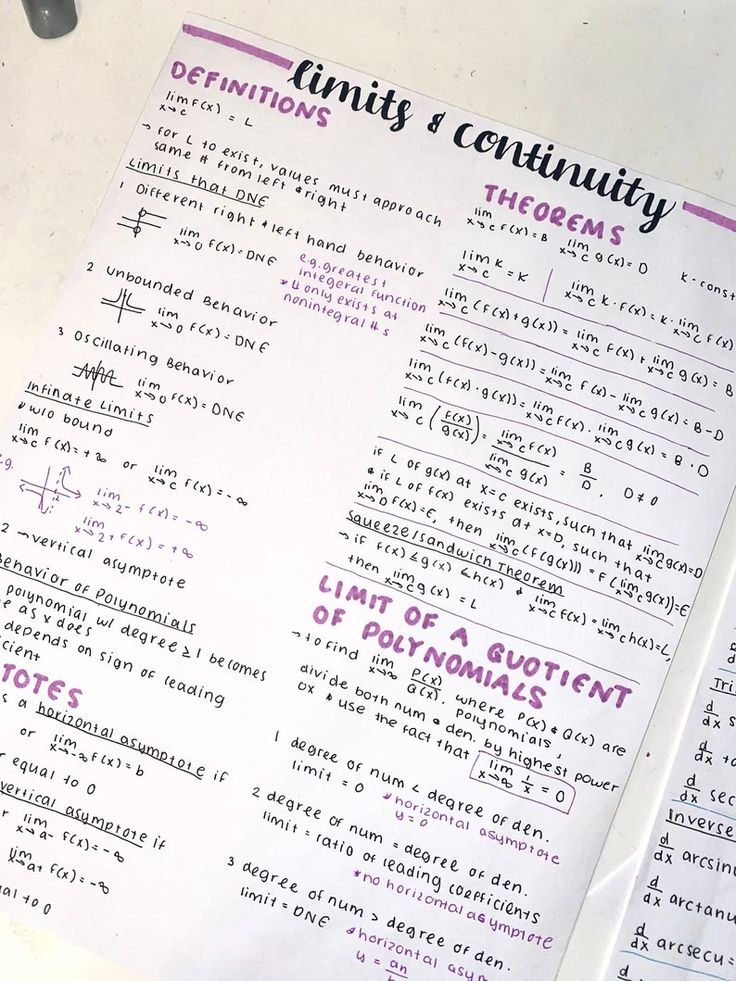 limits & continuity
DEFINITIONS
lim f(x) = L
x→c
→ for L to exist, values must approach
same # from left & right
Limits that DNE
1 Different right & left hand behavior
lim f(x) = DNE
x→0
e.g. greatest
integeral function
* L only exists at
nonintegral #s
2 unbounded Behavior
lim f(x) = DNE
x→0
3 Oscillating Behavior
lim f(x) = DNE
x→0
Infinate Limits
* w/o bound
lim f(x) = +∞ or lim f(x) = -∞
x→c x→c
e.g.
lim f(x) = -∞
x→2⁻
lim f(x) = +∞
x→2⁺
2 → vertical asymptote
Behavior of Polynomials
polynomial w/ degree ≥ 1 becomes
as x does
depends on sign of leading
TOTES
a horizontal asymptote if
or lim f(x) = b
x→-∞
equal to 0
vertical asymptote if
lim f(x) = -∞
x→a⁻
lim f(x) = -∞
x→a⁺
to 0
THEOREMS
lim f(x) = B lim g(x) = D
x→c x→c
K - const
lim K = K
x→c
lim K · f(x) = K · lim f(x)
x→c x→c
lim (f(x) + g(x)) = lim f(x) + lim g(x) = B
x→c x→c x→c
lim (f(x) - g(x)) = lim f(x) - lim g(x) = B - D
x→c x→c x→c
lim (f(x) · g(x)) = lim f(x) · lim g(x) = B · D
x→c x→c x→c
lim (f(x)/g(x)) = lim f(x) / lim g(x) = B/D, D ≠ 0
x→c x→c x→c
if L of g(x) at x=c exists, such that lim g(x) = D
x→c
& if L of f(x) exists at x=D, such that
lim f(x) = E, then lim (f(g(x))) = f(lim g(x)) = E
x→D x→c x→c
Squeeze/Sandwich Theorem
→ if f(x) ≤ g(x) ≤ h(x) & lim f(x) = lim h(x) = L,
x→c x→c
then lim g(x) = L
x→c
LIMIT OF A QUOTIENT
OF POLYNOMIALS
→ to find lim P(x)/Q(x), where P(x) & Q(x) are
x→∞
polynomials,
divide both num & den. by highest power
ox & use the fact that lim 1/x = 0
x→∞
1 degree of num < degree of den.
limit = 0
* horizontal asymptote
y = 0
2 degree of num = degree of den.
limit = ratio of leading coefficients
* no horizontal asymptote
3 degree of num > degree of den.
limit = DNE
* horizontal asym
y = an
d/dx
d/dx sec
Inverse
d/dx arcsin
d/dx arctanu
d/dx arcsecu =